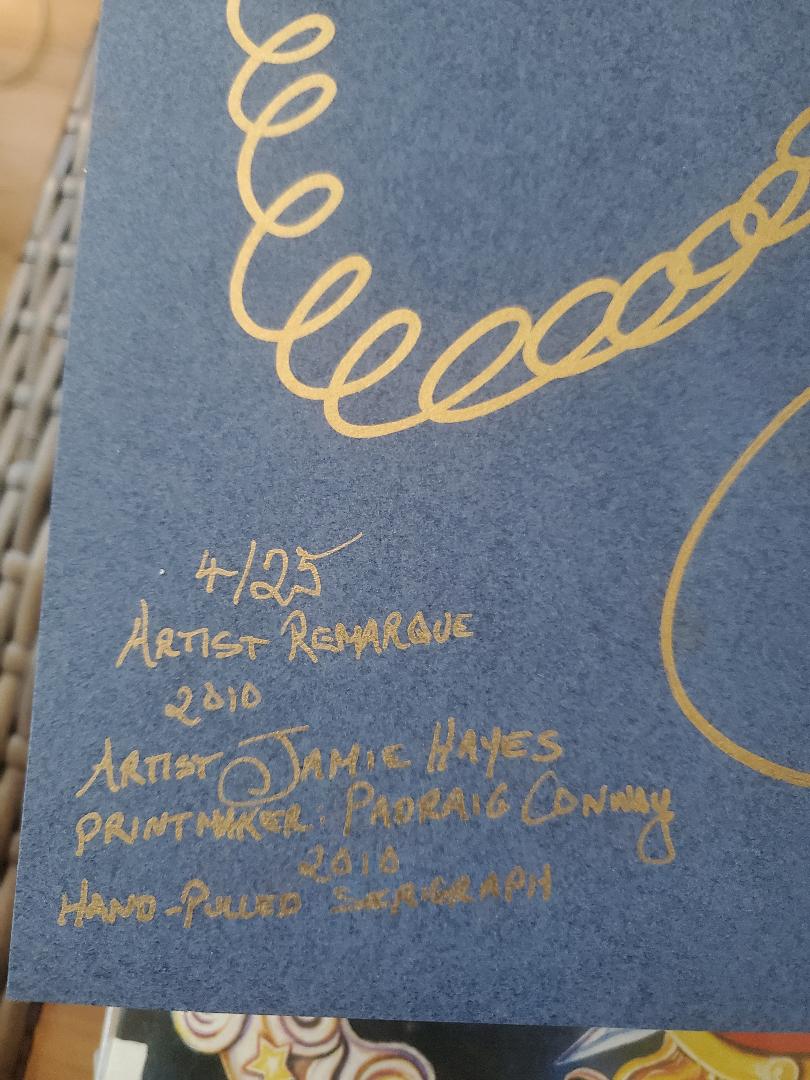 4/25
ARTIST REMARQUE
2010
ARTIST JAMIE HAYES
PRINTMAKER: PADRAIG CONWAY
2010
HAND-PULLED SERIGRAPH